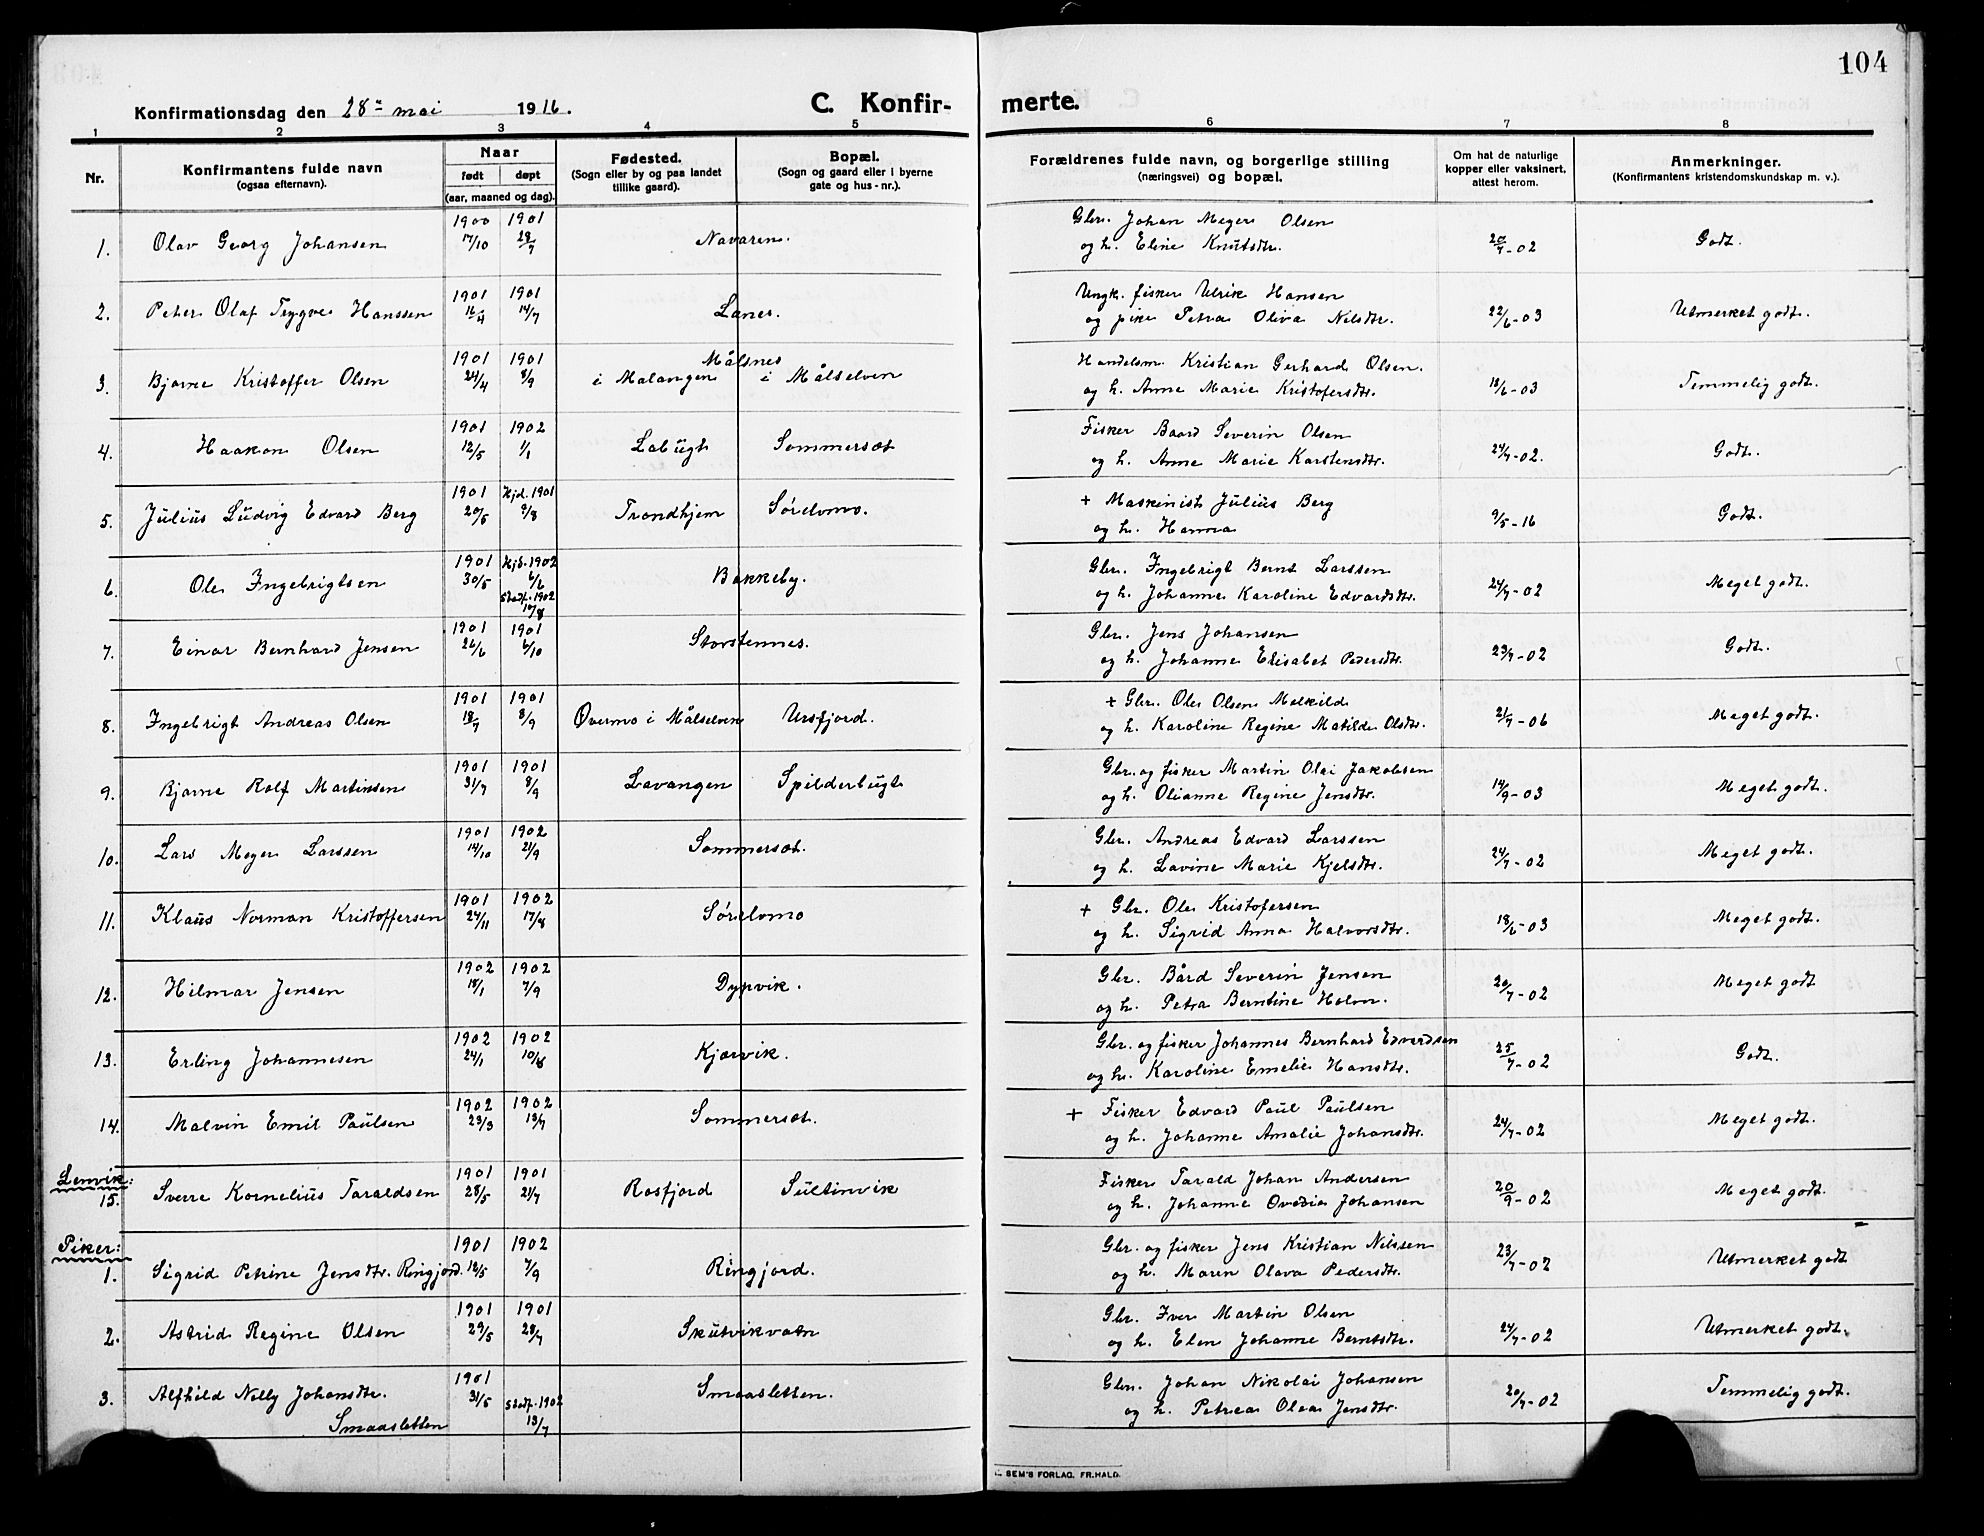 104
Konfirmationsdag den 28de mai 1916.
C. Konfirmerte.
1 2 3 4 5 6 7 8
Nr.
Konfirmantens fulde navn
(ogsaa efternavn).
Naar
født døpt
(aar, maaned og dag).
Fødested.
(Sogn eller by og paa landet
tillike gaard).
Bopæl.
(Sogn og gaard eller i byerne
gate og hus-nr.).
Forældrenes fulde navn, og borgerlige stilling
(næringsvei) og bopæl.
Om hat de naturlige
kopper eller vaksinert,
attest herom.
Anmerkninger.
(Konfirmantens kristendomskundskap m. v.).
1. Olav Georg Johansen 1900 17/10 1901 28/7 Navaren. Gbr. Johan Meyer Olsen
og h. Eline Knutsdtr. 20/7-02 Godt.
2. Peter Olaf Trygve Hanssen 1901 16/4 1901 14/7 Laner. Ungk. fisker Ulrik Hansen
og pike Petra Oliva Nilsdtr. 22/6-03 Utmerket godt.
3. Bjarne Kristoffer Olsen 1901 24/4 1901 8/9 Målsnes
i Malangen i Målselven Handelsm. Kristian Gerhard Olsen.
og h. Anne Marie Kristofersdtr. 18/6-03 Temmelig godt.
4. Haakon Olsen 1901 12/5 1902 1/1 Løbugt Sommersæt Fisker Baard Severin Olsen
og h. Anne Marie Karstensdtr. 24/7-02. Godt.
5. Julius Ludvig Edvard Berg 1901 20/5 Hjd. 1901 9/8 Trondhjem Sørelvmo. + Maskinist Julius Berg
og h. Hanna 9/5-16 Godt.
6. Ole Ingebrigtsen 1901 30/5 Hjd. 1902 6/6
Stadf. 1902 17/8 Bakkeby. Gbr. Ingebrigt Bernt Larssen
og h. Johanne Karoline Edvardsdtr. 24/7-02 Meget godt.
7. Einar Bernhard Jensen 1901 26/6 1901 6/10 Storstennes. Gbr. Jens Johansen
og h. Johanne Elisabet Pedersdtr. 23/7-02 Godt.
8. Ingebrigt Andreas Olsen 1901 18/7 1901 8/9 Øvermo i Målselven Ursfjord. + Gbr. Ole Olsen Melkild
og h. Karoline Regine Matilde Olsdtr. 21/7-06 Meget godt.
9. Bjarne Rolf Martinsen 1901 31/7 1901 8/9 Lavangen Spilderbugt Gbr. og fisker Martin Olai Jakobsen
og h. Olianne Regine Jensdtr. 14/9-03 Meget godt.
10. Lars Meyer Larssen 1901 14/10 1902 21/9 Sommersæt. Gbr. Andreas Edvard Larssen
og h. Lavine Marie Kjelsdtr. 24/7-02 Meget godt.
11. Klaus Norman Kristoffersen 1901 24/11 1902 17/8 Sørelvmo + Gbr. Ole Kristofersen
og h. Sigrid Anna Halvorsdtr. 18/6-03 Meget godt.
12. Hilmar Jensen 1902 18/1 1902 7/9 Dypvik. Gbr. Bård Severin Jensen
og h. Petra Berntine Holvor. 20/7-02 Meget godt
13. Erling Johannesen 1902 24/1 1902 10/8 Kjærvik. Gbr. og fisker Johannes Bernhard Edvardsen
og h. Karoline Emelie Hansdtr. 25/7-02 Godt.
14. Malvin Emil Paulsen 1902 23/3 1902 13/7 Sommersæt. + Fisker Edvard Paul Paulsen
og h. Johanne Amalie Johansdtr. 24/7-02 Meget godt.
Lenvik:
15. Sverre Kornelius Taraldsen 1901 28/5 1901 21/7 Rosfjord Sultinvik Fisker Tarald Johan Andersen
og h. Johanne Ovedia Johansen 20/9-02 Meget godt.
Piker:
1. Sigrid Petrine Jensdtr. Ringjord. 1901 12/5 1902 7/9 Ringjord. Gbr. og fisker Jens Kristian Nilssen
og h. Maren Olava Pedersdtr. 23/7-02 Utmerket godt
2. Astrid Regine Olsen 1901 29/5 1901 28/7 Skutvikvatn Gbr. Iver Martin Olsen
og h. Elen Johanne Berntsdtr. 24/7-02 Utmerket godt.
3. Alfhild Nelly Johansdtr.
Smaasletten 1901 31/5 Stadf. 1902 13/7 Smaasletten. Gbr. Johan Nikolai Johansen
og h. Petrea Olea Jensdtr. 20/7-02 Temmelig godt.
SEM'S FORLAG. FR.HALD.